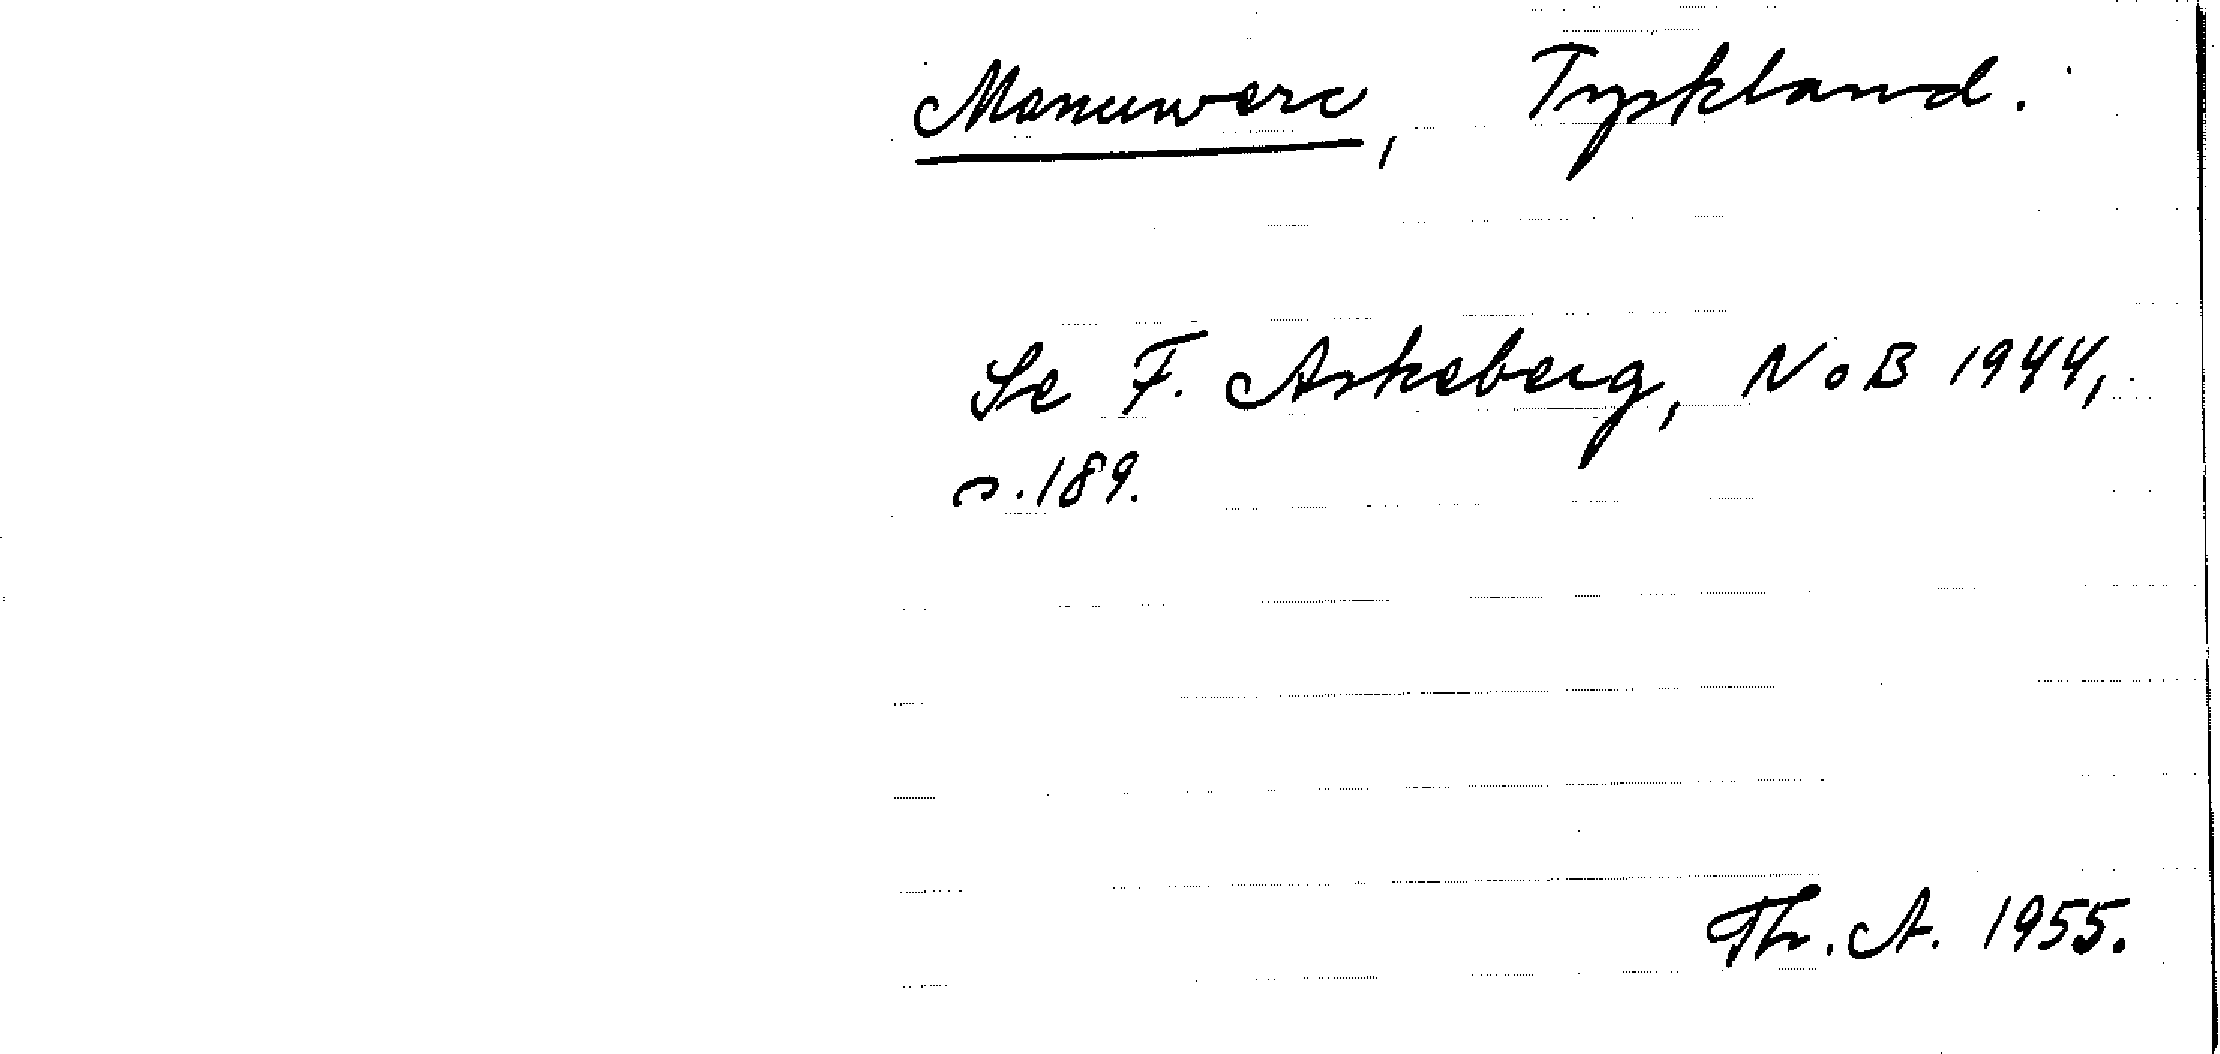 Manuwerc, Tyskland.
Se F. Askeberg, NoB 1944,
s. 189.
Th. A. 1955.